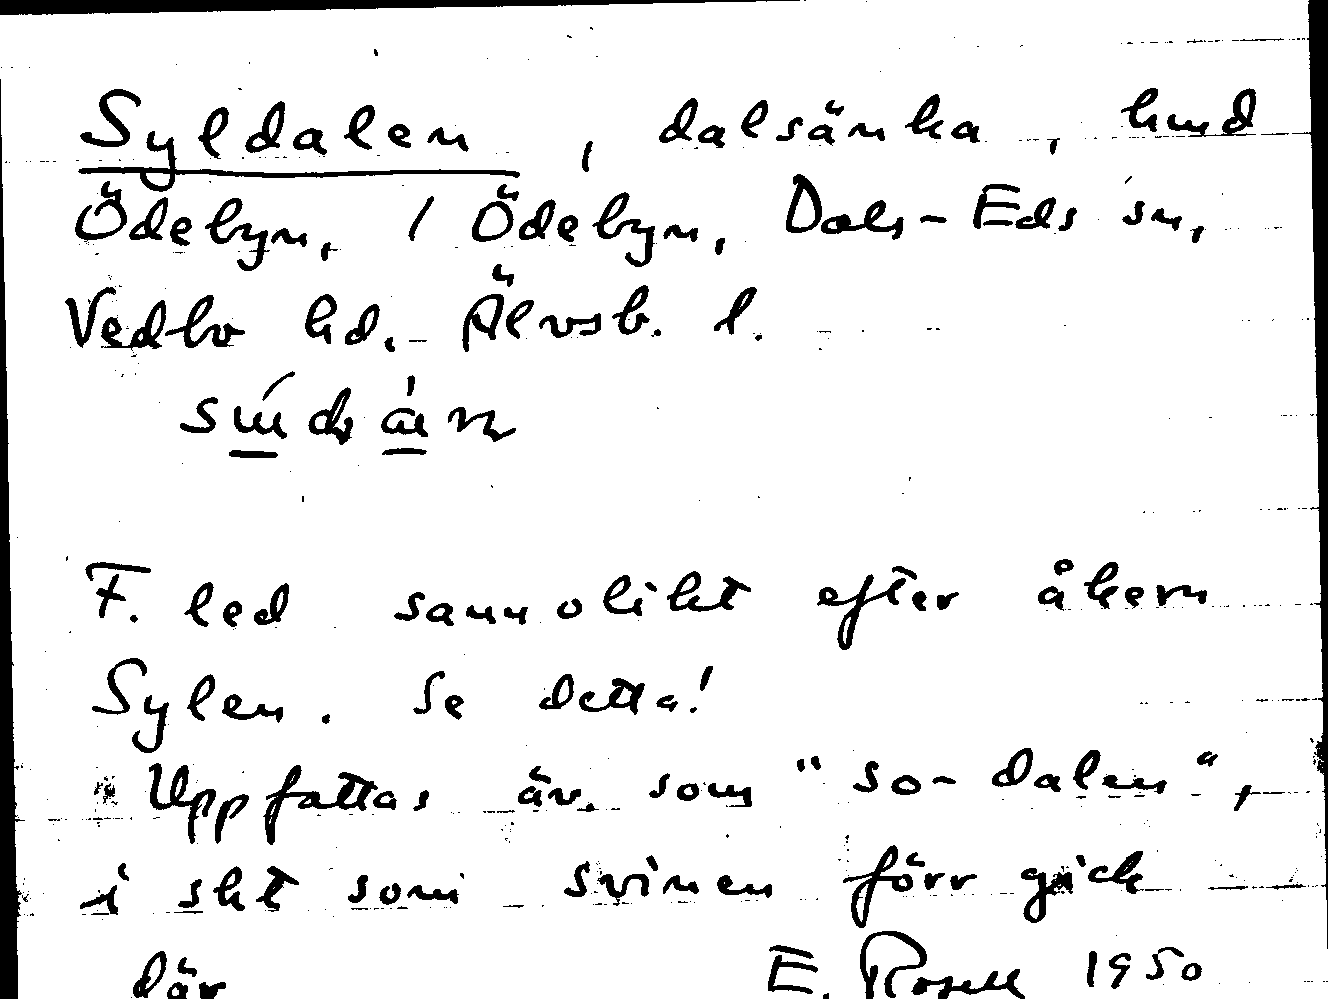 Syldalen, dalsänka, hmd
Ödebyn, 1 Ödebyn, Dals-Eds sn,
Vedbo hd. Älvsb. l.
F. led sannolikt efter åkern
Sylen. Se detta!
Uppfattas äv. som "so-dalen",
i sht som svinen förr gick
där E. Rosell 1950